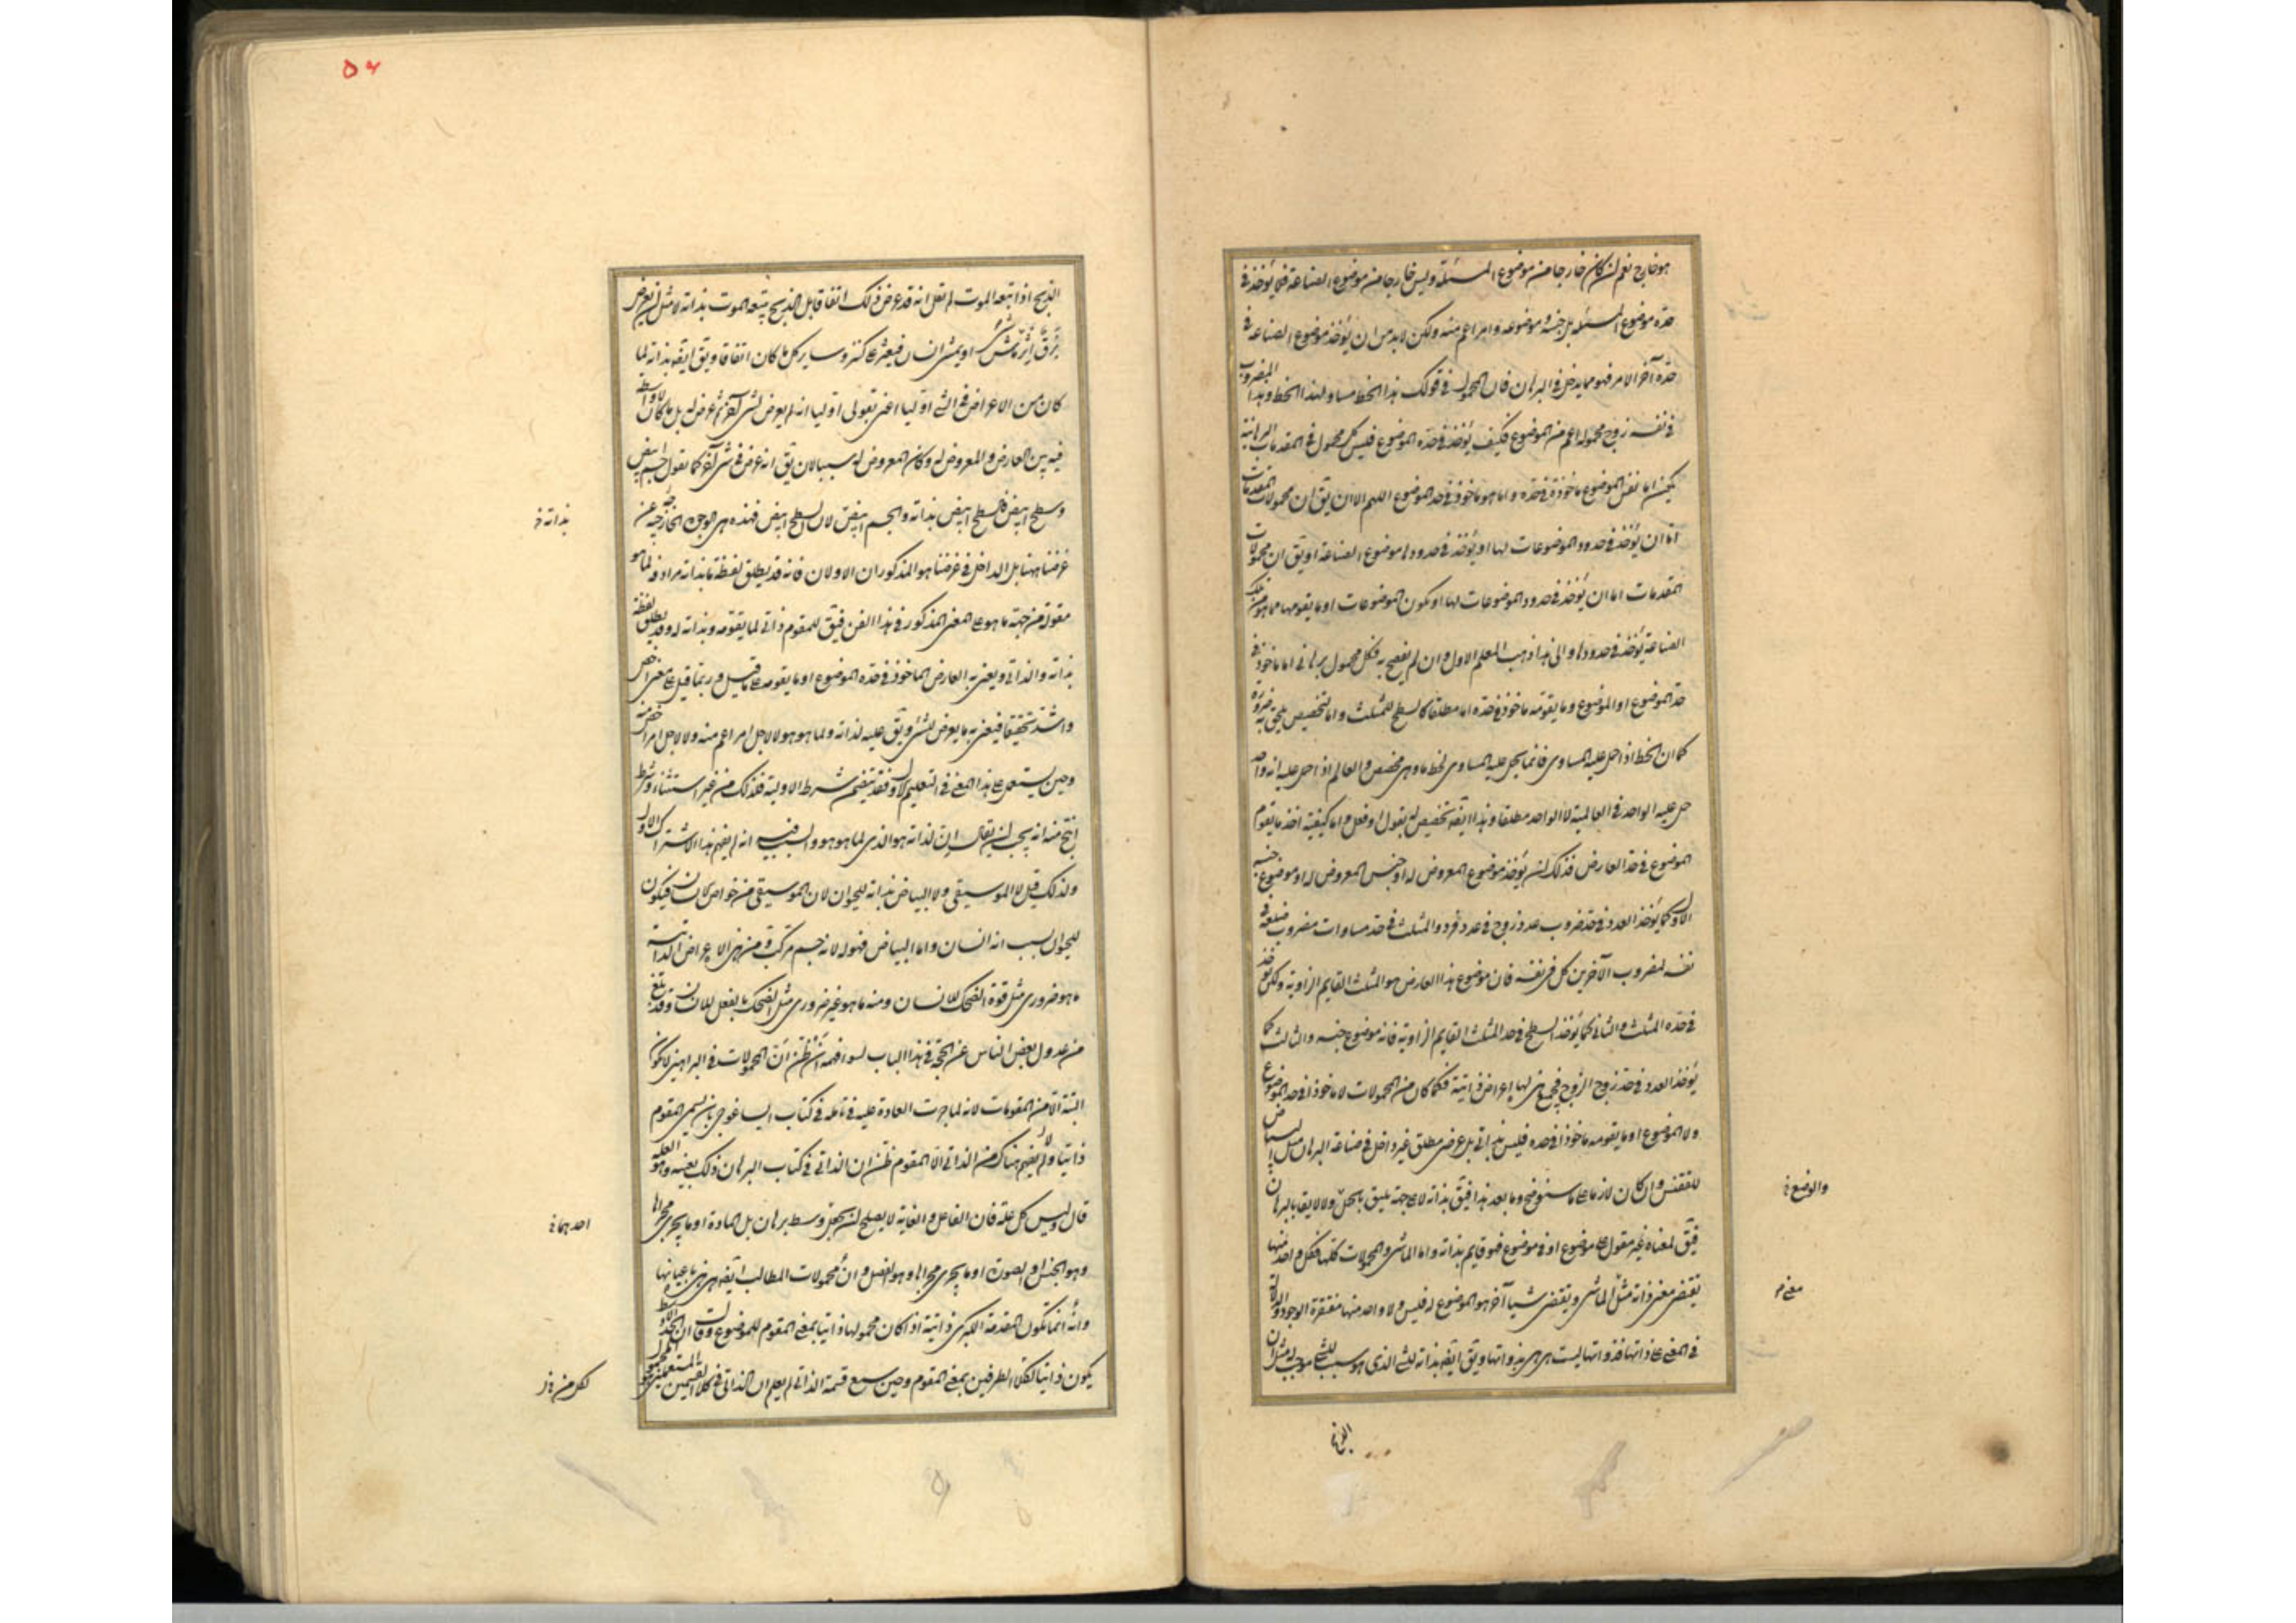 هو خارج نعم ان كان خارجا من موضوع المسئلة وليس خارجا من موضوع الصناعة فيؤخذ فى
حده موضوع المسئلة بل جنس موضوعه وامر اعم منه ولكن لابد من ان يؤخذ موضوع الصناعة فى
حده آخر الامر فهو مما يدخل فى البرهان فان المحمول فى قولك هذا الخط مساو لهذا الخط وهذا المضروب
فى نفسه زوج محموله اعم من الموضوع فكيف يؤخذ فى حده الموضوع فليس كل محمول فى المقدمات البرهانية
اما نفس الموضوع ماخوذة فى حده واما هو ماخوذ فى حد الموضوع اللهم الا ان يق ان محمولات المقدمات
اما ان يؤخذ فى حدود الموضوعات لها او يؤخذ فى حدودها موضوع الصناعة او يق ان محمولات
المقدمات اما ان يؤخذ فى حدود الموضوعات لها او يكون الموضوعات او ما يقومها مما هو من تلك
الصناعة يؤخذ فى حدودها والى هذا ذهب المعلم الاول وان لم يفصح به فكل محمول برهانى اما ماخوذ فى
حد الموضوع او الموضوع وما يقومه ماخوذ فى حده اما مطلقا كالسطح للمثلث واما لتخصيص يلحق به ضرورة
كما ان الخط اذا حمل عليه المساوى فانما يحمل عليه المساوى لخط ما وهى مخصص والعالم اذا حمل عليه انه واحد
حمل عليه الواحد فى العالمية لا الواحد مطلقا وهذا ايضه تخصيص له بقول او فعل واما كيفية اخذ ما يقوم
الموضوع فى حد العارض فذلك ان يؤخذ موضوع المعروض له او جنس المعروض له او موضوع جنسه
الاول كما يؤخذ العدد فى حد مضروب عدد زوج فى عدد فرد والمثلث فى حد مساوات مضروب ضلعه فى
نفسه لمضروب الآخرين كل فى نفسه فان موضوع هذا العارض هو المثلث القايم الزاوية ولكن يؤخذ
فى حده المثلث والثانى كما يؤخذ السطح فى حد المثلث القايم الزاوية فانه موضوع جنسه والثالث كما
يؤخذ العدد فى حد زوج الزوج فجميع هذه لها اعراض ذاتية فكلما كان من المحمولات لا ماخوذا فى حد الموضوع
ولا الموضوع او ما يقومه ماخوذا فى حده فليس بذاتى بل عرض مطلق غير داخل فى صناعة البرهان مثل البياض
للققنس وان كان لازما على ما سنوضح وما بعد هذا فيق بذاته لا على جهة يليق بالحمل ولا لايقا بالبرهان
فيق لمعناه غير مقول على موضوع او فى موضوع فهو قايم بذاته واما الماشى والمحمولات كلها فكل واحد منها
يقتضى معنى ذاته مثل الماشى ويقتضى شيا آخر هو الموضوع له فليس ولا واحد منها مفتقرة الوجود والدلالة
فى المعنى على ذاتها فذواتها ليست هى هى بذواتها ويق ايضه بذاته للشى الذى هو سبب للشى موجب له مثل ان
والوضع
معنى
الذبح
٥٦
الذبح اذا تبعه الموت لم نقل انه قد عرض ذلك اتفاقا بل الذبح يتبعه الموت بذاته لا مثل ان يعرض
برق اثر ماش او يمشى انسان فيعثر على كنز وساير كل ما كان اتفاقا ويق ايضه بذاته لما
كان من الاعراض فى الشى اوليا اعنى بقولى اوليا انه لم يعرض لشى آخر ثم عرض له بل ما كان لا واسطة
فيه بين العارض والمعروض له وكان المعروض له سببا لان يق انه عرض فى شى آخر كما نقول جسم ابيض
وسطح ابيض فالسطح ابيض بذاته والجسم ابيض لان السطح ابيض فهذه هى الوجوه الخارجة عن
غرضنا ههنا بل الداخل فى غرضنا هو المذكوران الاولان فانه قد يطلق لفظة ما بذاته مرادفة لما هو
مقولة من جهة ما هو على المعنى المذكور فى هذا الفن فيق للمقوم ذاتى لما يقومه وبذاته له وقد يطلق لفظة
بذاته والذاتى ويعنى به العارض الماخوذ فى حده الموضوع او ما يقومه على ما قيل وربما قيل على معنى اخص
واشد تحقيقا فيعنى به ما يعرض للشى ويق عليه لذاته ولما هو هو لا لاجل امر اعم منه ولا لاجل امر اخص منه
وحين يستعمل على هذا المعنى فى التعليم الاول فقد يتضمن شرط الاولية فذلك من غير استثناء وشرط
انتج منه انه يجب ان يقال ان لذاته هو الذى لما هو هو والسبب فيه انه لم يفهم هذا الاشتراك الاول
ولذلك قيل لا الموسيقى ولا البياض بذاته للحيوان لان الموسيقى من خواص الانسان فيكون
للحيوان بسبب انه انسان واما البياض فهو له لانه جسم مركب ومن هذه الاعراض الذاتية
ما هو ضرورى مثل قوة الضحك للانسان ومنه ما هو غير ضرورى مثل الضحك بالفعل للانسان وقد بلغ
من عدول بعض الناس عن الحجة فى هذا الباب لسوء فهمه ان ظن ان المحمولات فى البراهين لا تكون
البتة الا من المقومات لانه لما جرت العادة عليه فى تامله فى كتاب ايساغوجى بان يسمى المقوم
ذاتيا ولا يفهم هناك من الذاتى الا المقوم ظن ان الذاتى فى كتاب البرهان ذلك بعينه وهو العلة
قال وليس كل علة فان الفاعل والغاية لا يصلح ان يجعل وسط برهان بل المادة او ما يجرى مجراها
وهو الجنس والصورة او ما يجرى مجراها وهو الفصل وان محمولات المطالب ايضه هى هذه باعيانها
وانه انما تكون المقدمة الكبرى ذاتية اذا كان محمولها ذاتيا بمعنى المقوم للموضوع وقال ان الحد الاوسط
يكون ذاتيا لكلا الطرفين بمعنى المقوم وحين سمع قسمة الذاتى لم يعلم ان الذاتى فى كلا القسمين
بذاته
احديهما